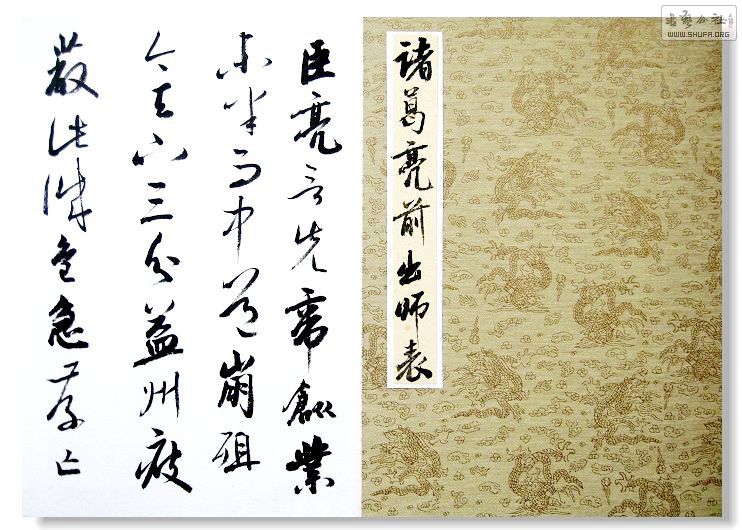 諸葛亮前出師表
臣亮言先帝創業
未半而中道崩殂
今天下三分益州疲
蔽此誠危急存亡
書藝公社
WWW.SHUFA.ORG